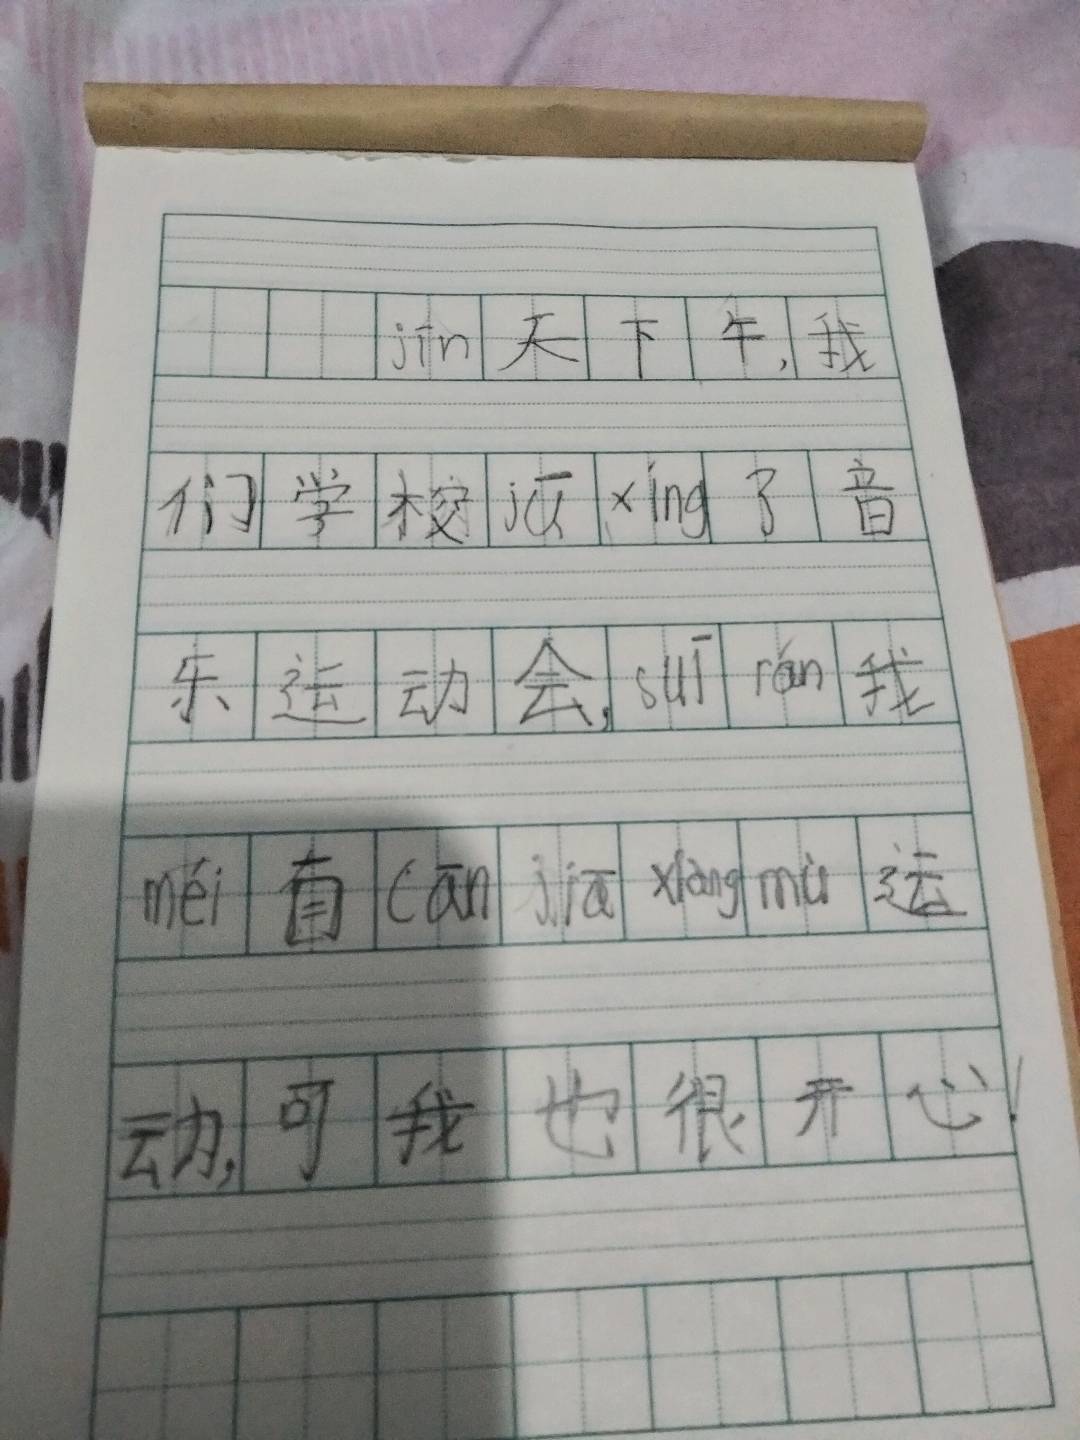 jīn天下午,我
们学校jū xíng了音
乐运动会,suī rán我
méi有cān jiā xiàng mù运
动,可我也很开心!